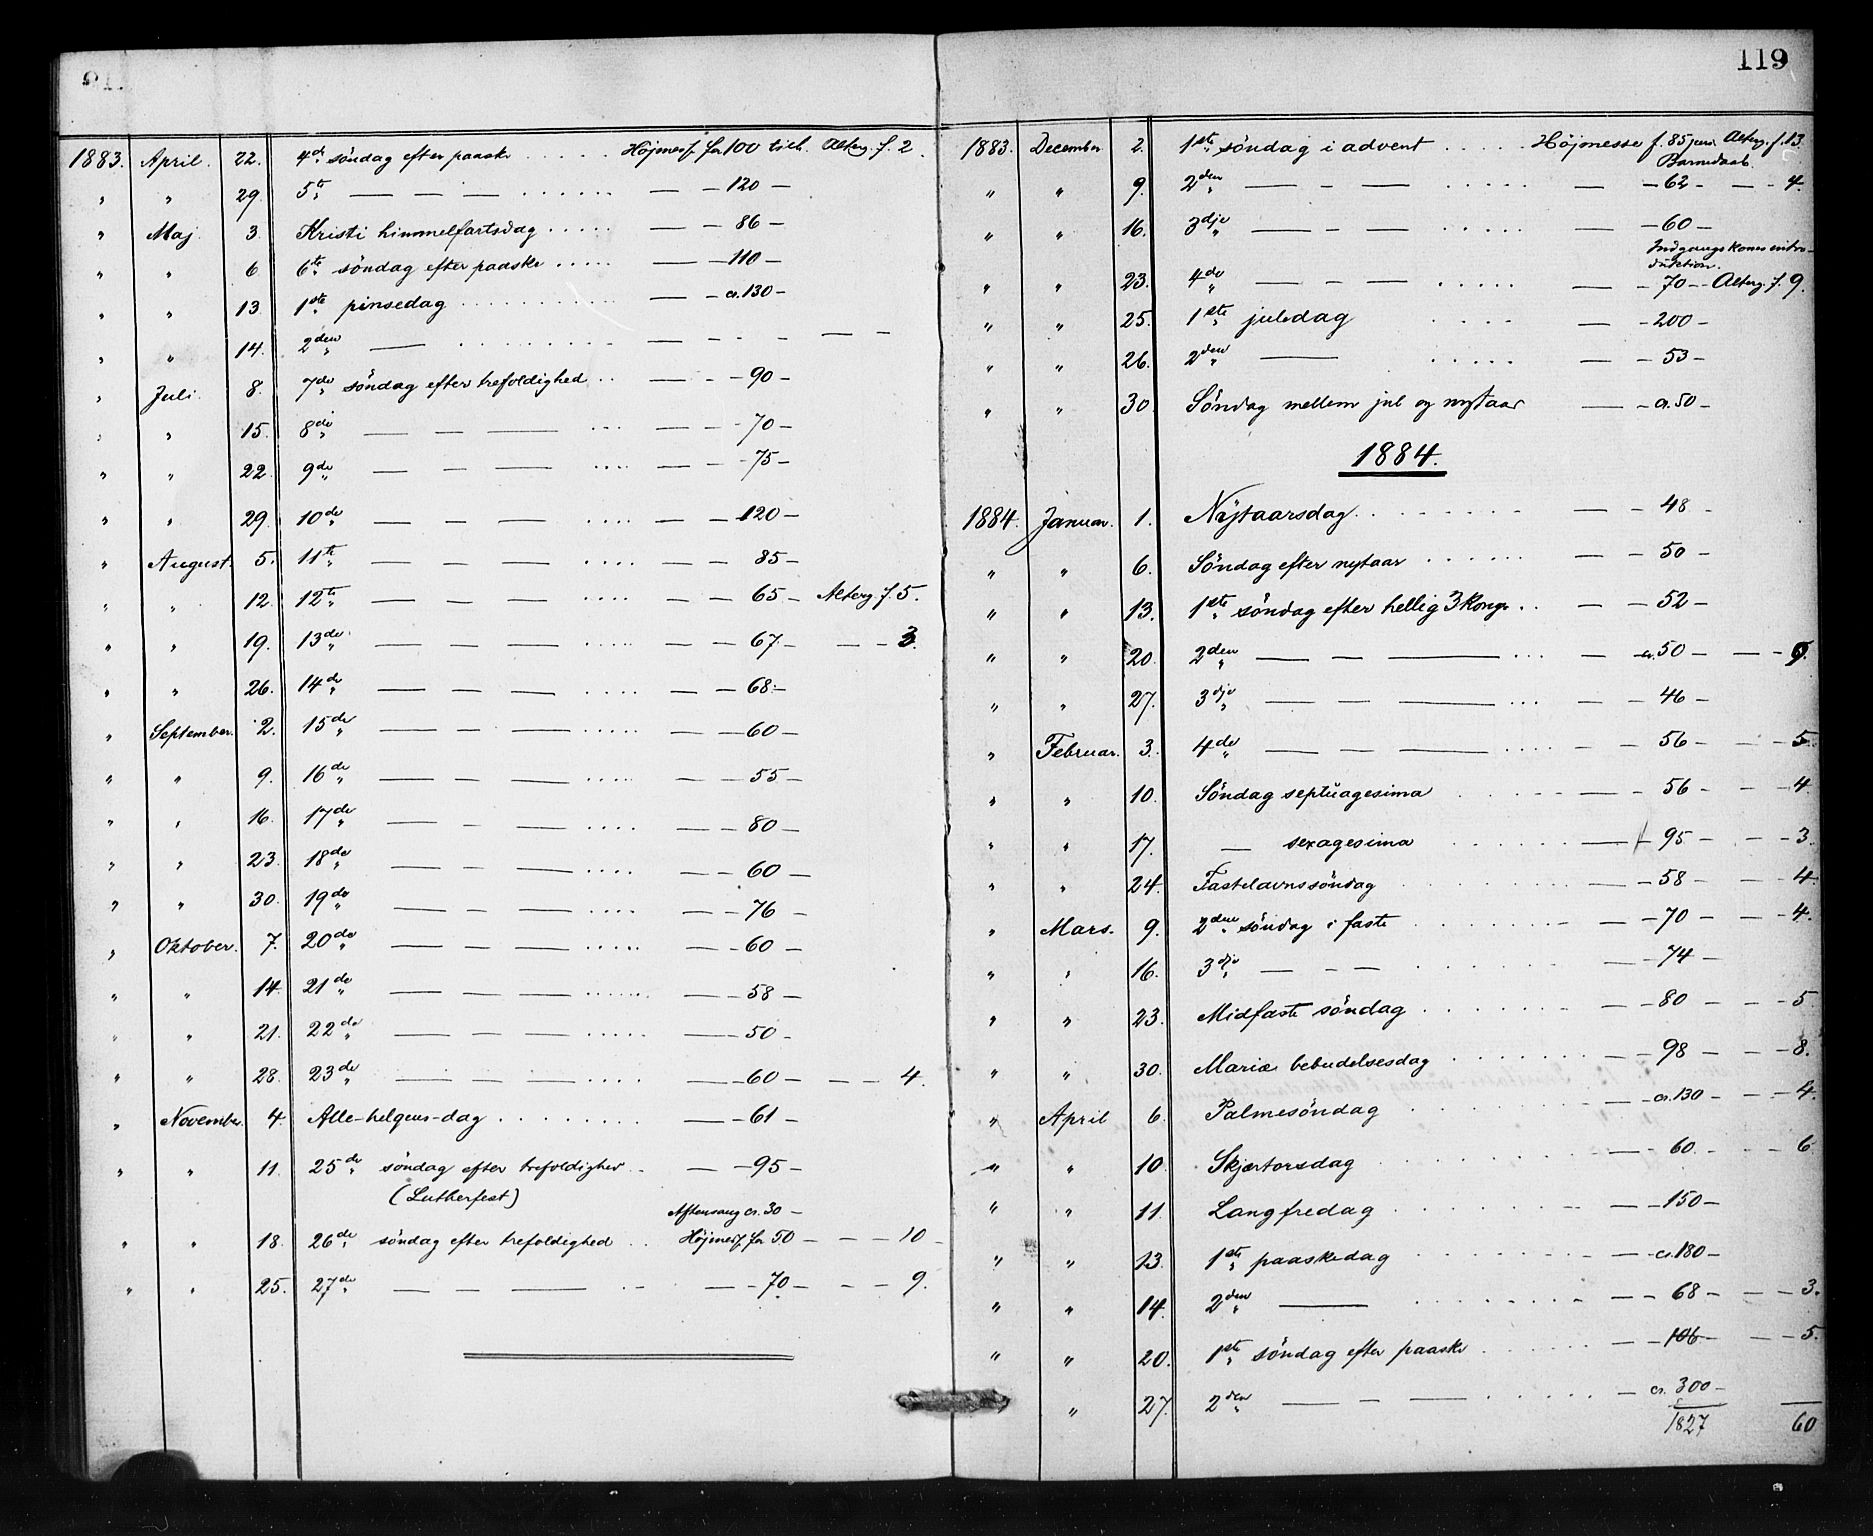 1883. April. 22. 4de söndag efter paaske ..... Höjmesse for 100 tilh. Alterg. f. 2.
" " 29. 5te — — — ...... — — 120 —
" Maj. 3. Kristi himmelfartsdag ..... — — 86 —
" " 6 6te söndag efter paaske ..... — — 110 —
" " 13. 1ste pinsedag .......... — — ca. 130 —
" " 14. 2den — .......... — — - - — —
" Juli. 8. 7de söndag efter trefoldighed .. — - — 90 —
" " 15. 8de — — — ... — — — 70 —
" " 22. 9de — — — .... — — — 75 —
" " 29. 10de — — — .... — — — 120 —
" August. 5. 11te — — — .... — — 85 —
" " 12. 12te — — — .... — — 65 — Alterg. f. 5.
" " 19. 13de — — — ..... — — — 67. — — — 3.
" " 26. 14de — — — .... — — 68. —
" September. 2. 15de — — — ..... — — — 60 —
" " 9. 16de — — — ..... — — — 55 —
" " 16. 17de — — — .... — — — 80 —
" " 23. 18de — — — .... — — — 60 —
" " 30. 19de — — — .... — — — 76 —
" Oktober. 7. 20de — — — ..... — — — 60 —
" " 14. 21de — — — ...... — — — 58 —
" " 21. 22de — — — ..... — — — 50 —
" " 28. 23de — — — ..... — — 60 — — — 4.
" November. 4. Alle-helgens-dag ........ — — 61 —
" " 11. 25de söndag efter trefoldighed .. — — 95 —
(Lutherfest)
Aftensang ca. 30 —
" " 18. 26de söndag efter trefoldighed .. Höjmesse for 50 — — — 10 —
" " 25. 27de — — — .. — — 70 — — — 9.
119
1883. December 2. 1ste söndag i advent ..... Höjmesse f. 85 pers. Alterg. f. 13.
Barnedaab.
" " 9. 2den — — — ..... — — 62 — — — 4.
" " 16. 3dje — — — ..... — — 60 —
Indgangskones intro-
duktion.
" " 23. 4de — — — ...... — — 70 — — Alterg. f. 9.
" " 25. 1ste juledag .... — — 200 —
" " 26. 2den — ..... — — 53 —
" " 30. Söndag mellem jul og nytaar — — ca. 50 —
1884.
1884. Januar. 1. Nytaarsdag ........ — — 48 —
" " 6. Söndag efter nytaar ...... — — 50 —
" " 13. 1ste söndag efter hellig 3 Konger .. — — 52 —
" " 20. 2den — — — ... — ca. 50 — — —
" " 27. 3dje — — — ... — — 46 —
" Februar. 3. 4de — — — .... — — 56 — — — 5.
" " 10. Söndag septuagesima .... — — 56 — — — 4.
" " 17. — sexagesima ...... — 95 — — — 3.
" " 24. Fastelavnssöndag ....... — — 58 — — — 4.
" Mars. 9. 2den söndag i faste ....... — — 70 — — — 4.
" " 16. 3dje — — — ...... — — 74 —
" " 23. Midfaste söndag ....... — — 80 — — — 5.
" " 30. Mariæ bebudelsesdag ....... — — 98 — — — 8.
" April 6. Palmesöndag ........ — — ca. 130 — — — 4.
" " 10. Skjærtorsdag ........ — — 60. — — — 6
" " 11. Langfredag ........ — — 150 —
" " 13. 1ste paaskedag ........ — — ca. 180 —
" " 14. 2den — ....... — — 68 — — — 3.
" " 20. 1ste söndag efter paaske ...... — — 106 — — — 5.
" 27. 2den — — — ...... — ca. 300 —
1827 60